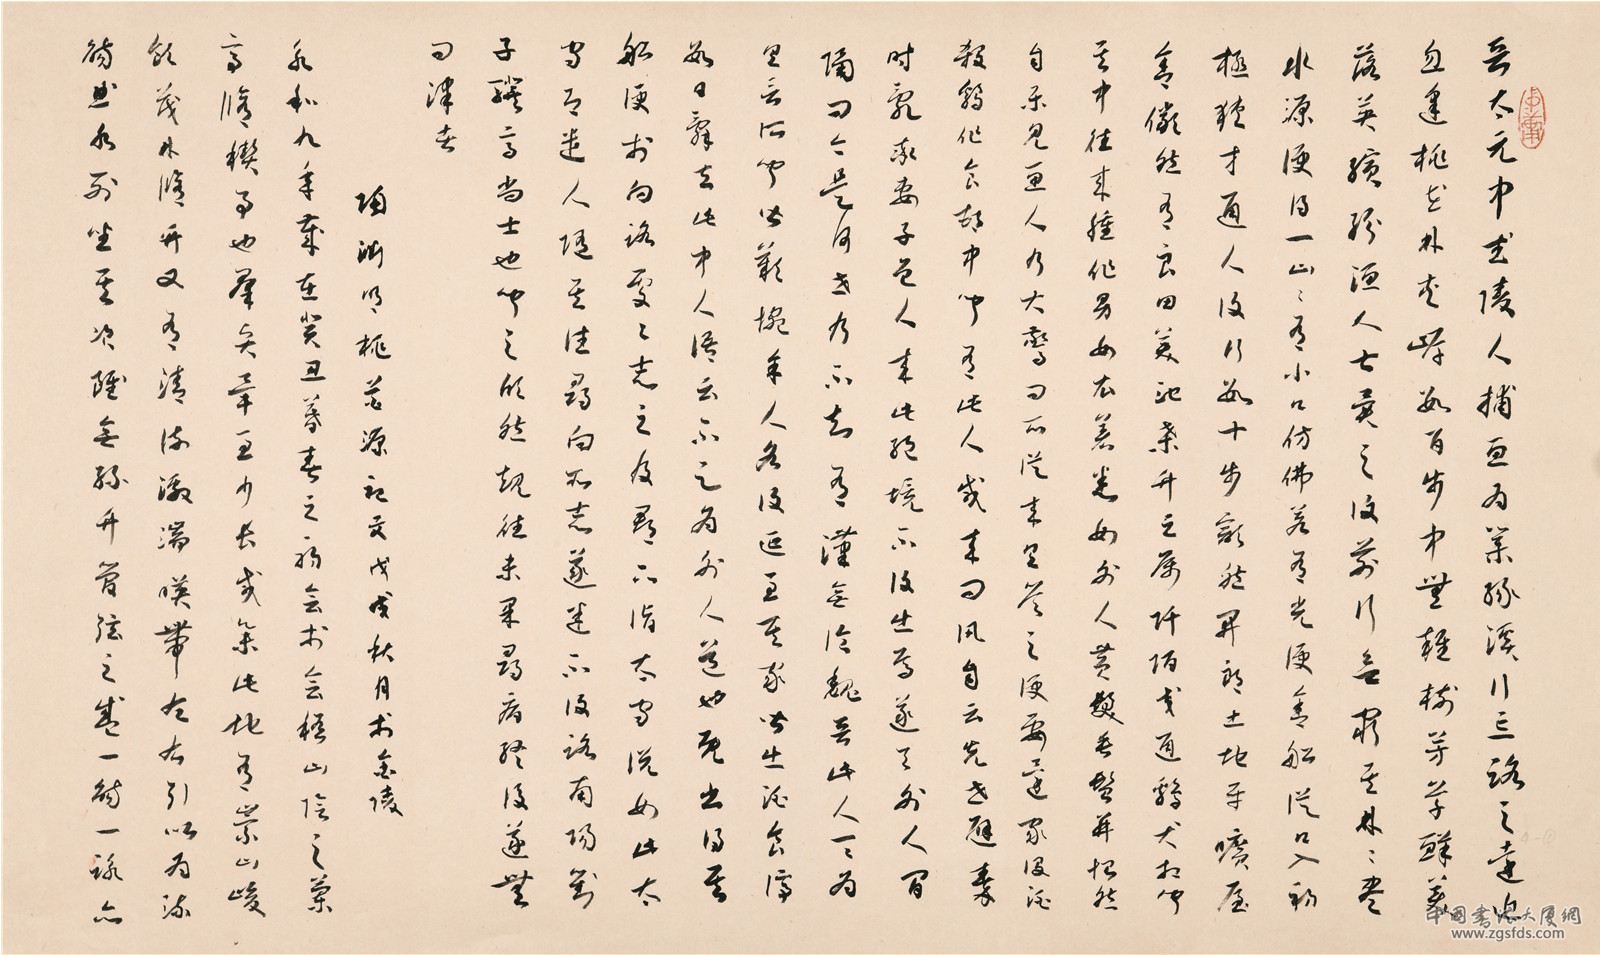 晉太元中武陵人捕魚為業緣溪行忘路之遠近
忽逢桃花林夾岸數百步中無雜樹芳草鮮美
落英繽紛漁人甚異之復前行欲窮其林林盡
水源便得一山山有小口仿佛若有光便舍船從口入初
極狹才通人復行數十步豁然開朗土地平曠屋
舍儼然有良田美池桑竹之屬阡陌交通雞犬相聞
其中往來種作男女衣著悉如外人黃髮垂髫並怡然
自樂見漁人乃大驚問所從來具答之便要還家設酒
殺雞作食村中聞有此人咸來問訊自云先世避秦
時亂率妻子邑人來此絕境不復出焉遂與外人間
隔問今是何世乃不知有漢無論魏晉此人一一為
具言所聞皆歎惋余人各復延至其家皆出酒食停
數日辭去此中人語云不足為外人道也既出得其
船便扶向路處處志之及郡下詣太守說如此太
守即遣人隨其往尋向所志遂迷不復路南陽劉
子驥高尚士也聞之欣然規往未果尋病終後遂無
問津者
陶淵明桃花源記文戊戌秋月於金陵
永和九年歲在癸丑暮春之初會於會稽山陰之蘭
亭脩稧事也羣賢畢至少長咸集此地有崇山峻
領茂林脩竹又有清流激湍暎帶左右引以為流
觴曲水列坐其次雖無絲竹管弦之盛一觴一詠亦
中国书法大厦網
www.zgsfds.com